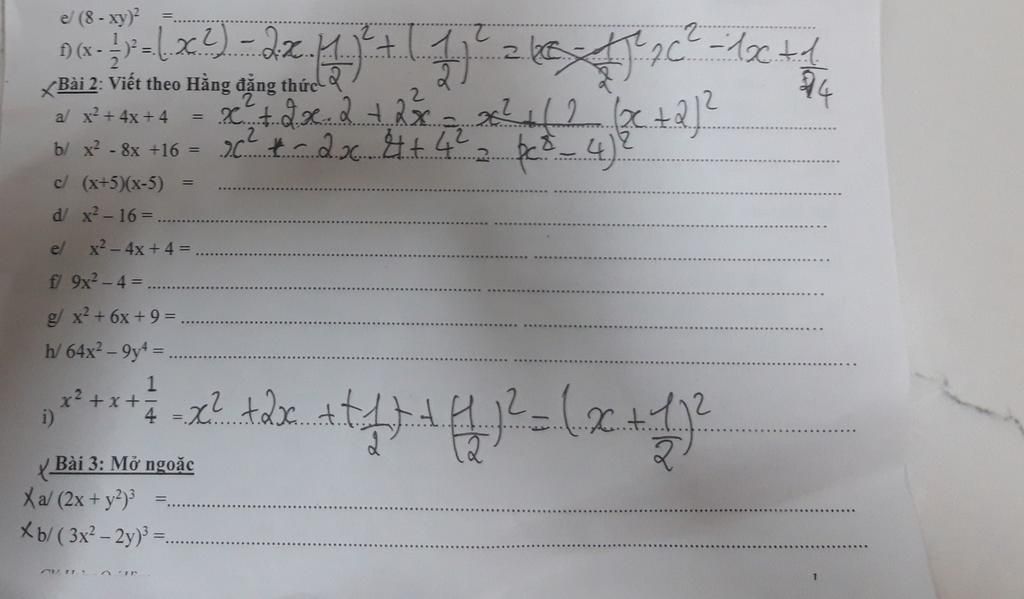 e/ (8 - xy)² =
f) (x - 1/2)² = (x²) - 2x.(1/2)² + (1/2)² = x² - 1x + 1/4
Bài 2: Viết theo Hằng đẳng thức
a/ x² + 4x + 4 = x² + 2x.2 + 2² = (x + 2)²
b/ x² - 8x +16 = x² - 2x 4 + 4² = (x - 4)²
c/ (x+5)(x-5) =
d/ x² – 16 =
e/ x² – 4x + 4 =
f/ 9x² – 4 =
g/ x² + 6x + 9 =
h/ 64x² – 9y⁴ =
i) x² + x + 1/4 = x² + 2x + (1/2) + (1/2)² = (x + 1/2)²
Bài 3: Mở ngoặc
x a/ (2x + y²)³ =
x b/ ( 3x² – 2y)³ =
1